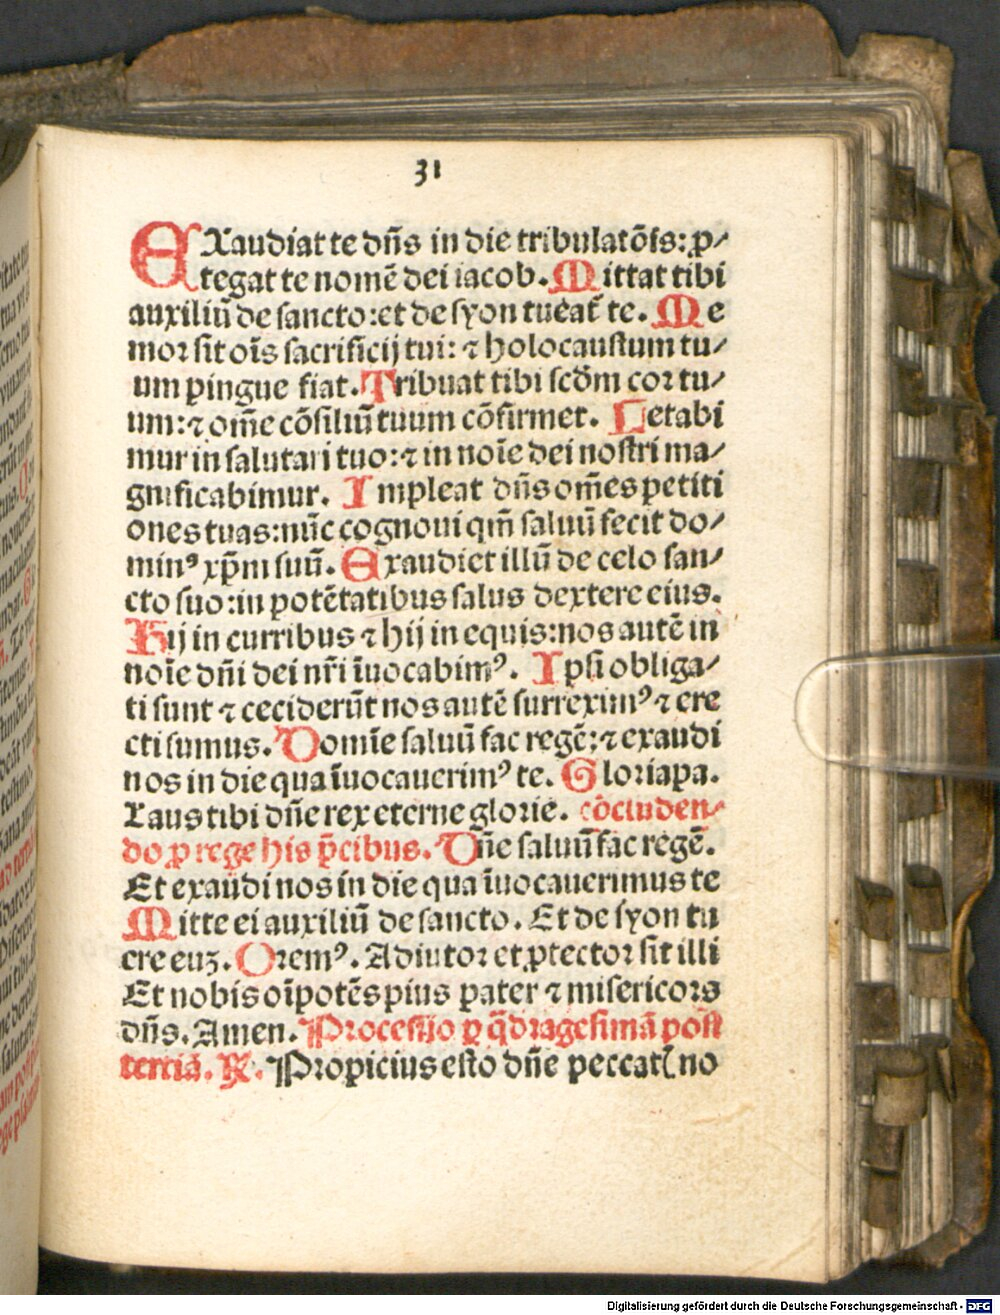 31
EXaudiat te dn̄s in die tribulatōis: ꝓ⸗
tegat te nomē dei iacob. Mittat tibi
auxiliū de sancto: et de syon tueat̄ te. Me
mor sit oīs sacrificij tui: ⁊ holocaustum tu⸗
um pingue fiat. Tribuat tibi scd̄m cor tu⸗
um: ⁊ om̄e cōsiliū tuum cōfirmet. Letabi
mur in salutari tuo: ⁊ in noīe dei nostri ma⸗
gnificabimur. Impleat dn̄s om̄es petiti
ones tuas: nūc cognoui qm̄ saluū fecit do⸗
minꝰ xp̄m suū. Exaudiet illū de celo san⸗
cto suo: in potētatibus salus dextere eius.
Hij in curribus ⁊ hij in equis: nos autē in
noīe dn̄i dei nr̄i īuocabimꝰ. Ipsi obliga⸗
ti sunt ⁊ ceciderūt nos autē surreximꝰ ⁊ ere
cti sumus. Domīe saluū fac regē: ⁊ exaudi
nos in die qua īuocauerimꝰ te. Gloria pa.
Laus tibi dn̄e rex eterne glorie. cōcluden⸗
do ꝓ rege his p̄cibus. Dn̄e saluū fac regē.
Et exaudi nos in die qua īuocauerimus te
Mitte ei auxiliū de sancto. Et de syon tu
ere euꝫ. Oremꝰ. Adiutor et ꝓtector sit illi
Et nobis oīpotēs pius pater ⁊ misericors
dn̄s. Amen. Processio ꝑ q̄dragesimā post
tertiā. ℟. Propicius esto dn̄e peccatꝭ no
Digitalisierung gefördert durch die Deutsche Forschungsgemeinschaft - DFG